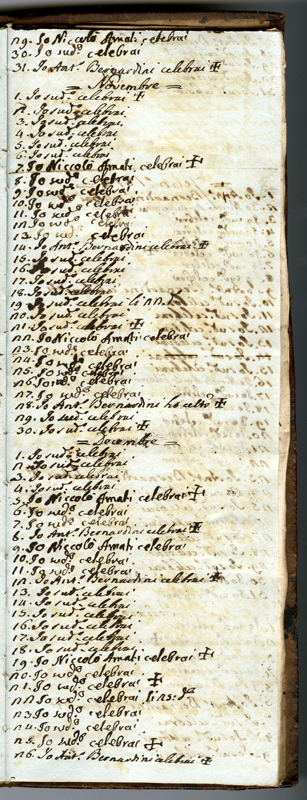 29. Io Niccolò Amati celebrai
30. Io sud.º celebrai
31. Io Ant.º Bernardini celebrai ✠
= Novembre =
1. Io sud.º celebrai ✠
2. Io sud.º celebrai
3. Io sud.º celebrai
4. Io sud.º celebrai
5. Io sud.º celebrai
6. Io sud.º celebrai
7. Io Niccolò Amati celebrai ✠
8. Io sud.º celebrai
9. Io sud.º celebrai
10. Io sud.º celebrai
11. Io sud.º celebrai
12. Io sud.º celebrai
13. Io sud.º celebrai
14. Io Ant.º Bernardini celebrai ✠
15. Io sud.º celebrai
16. Io sud.º celebrai
17. Io sud.º celebrai
18. Io sud.º celebrai
19. Io sud.º celebrai li 22.
20. Io sud.º celebrai
21. Io sud.º celebrai ✠
22. Io Niccolò Amati celebrai
23. Io sud.º celebrai
24. Io sud.º celebrai
25. Io sud.º celebrai
26. Io sud.º celebrai
27. Io sud.º celebrai
28. Io Ant.º Bernardini ✠
29. Io sud.º celebrai
30. Io sud.º celebrai ✠
= Decembre =
1. Io sud.º celebrai
2. Io sud.º celebrai
3. Io sud.º celebrai
4. Io sud.º celebrai
5. Io Niccolò Amati celebrai ✠
6. Io sud.º celebrai
7. Io sud.º celebrai
8. Io Ant.º Bernardini celebrai ✠
9. Io Niccolò Amati celebrai
10. Io sud.º celebrai
11. Io sud.º celebrai
12. Io Ant.º Bernardini celebrai ✠
13. Io sud.º celebrai
14. Io sud.º celebrai
15. Io sud.º celebrai
16. Io sud.º celebrai
17. Io sud.º celebrai
18. Io sud.º celebrai
19. Io Niccolò Amati celebrai ✠
20. Io sud.º celebrai
21. Io sud.º celebrai ✠
22. Io sud.º celebrai li 25.
23. Io sud.º celebrai
24. Io sud.º celebrai
25. Io sud.º celebrai ✠
26. Io Ant.º Bernardini celebrai ✠